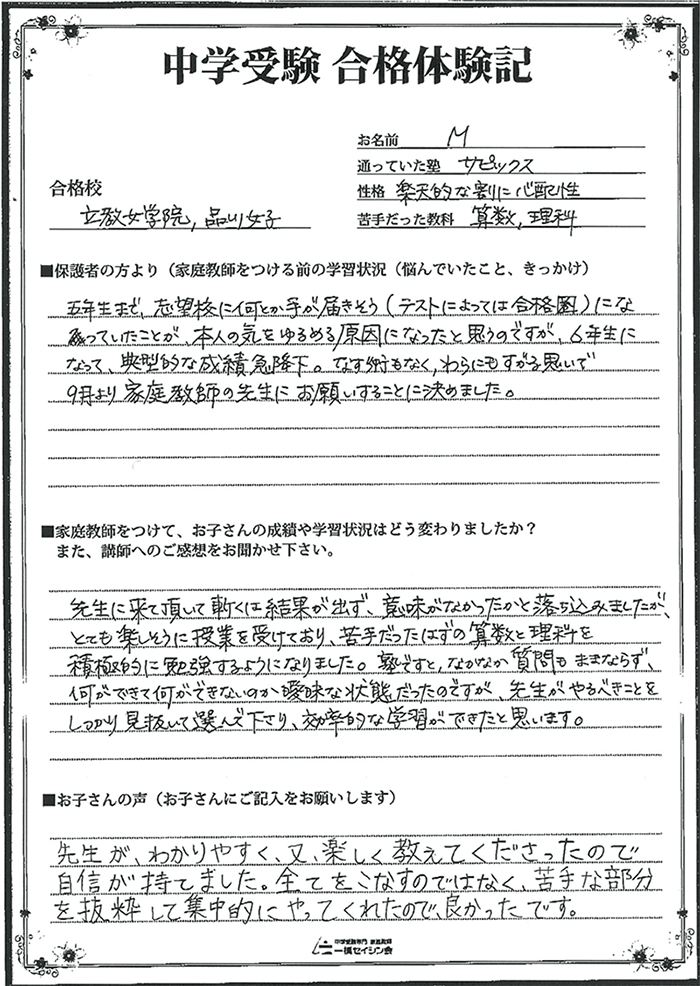 中学受験 合格体験記
お名前 M
通っていた塾 サピックス
合格校
性格 楽天的な割に心配性
立教女学院, 品川女子
苦手だった教科 算数, 理科
■保護者の方より（家庭教師をつける前の学習状況（悩んでいたこと、きっかけ）
五年生まで、志望校に何とか手が届きそう（テストによっては合格圏）にな
っていたことが、本人の気をゆるめる原因になったと思うのですが、6年生に
なって、典型的な成績急降下。なす術もなく、わらにもすがる思いで
9月より家庭教師の先生にお願いすることに決めました。
■家庭教師をつけて、お子さんの成績や学習状況はどう変わりましたか？
また、講師へのご感想をお聞かせ下さい。
先生に来て頂いて暫くは結果が出ず、意味がなかったかと落ち込みましたが、
とても楽しそうに授業を受けており、苦手だったはずの算数と理科を
積極的に勉強するようになりました。塾ですと、なかなか質問もままならず、
何ができて何ができないのか曖昧な状態だったのですが、先生がやるべきことを
しっかり見抜いて選んで下さり、効率的な学習ができたと思います。
■お子さんの声（お子さんにご記入をお願いします）
先生が、わかりやすく、又、楽しく教えてくださったので
自信が持てました。全てをこなすのではなく、苦手な部分
を抜粋して集中的にやってくれたので、良かったです。
中学受験専門 家庭教師
一橋セイシン会